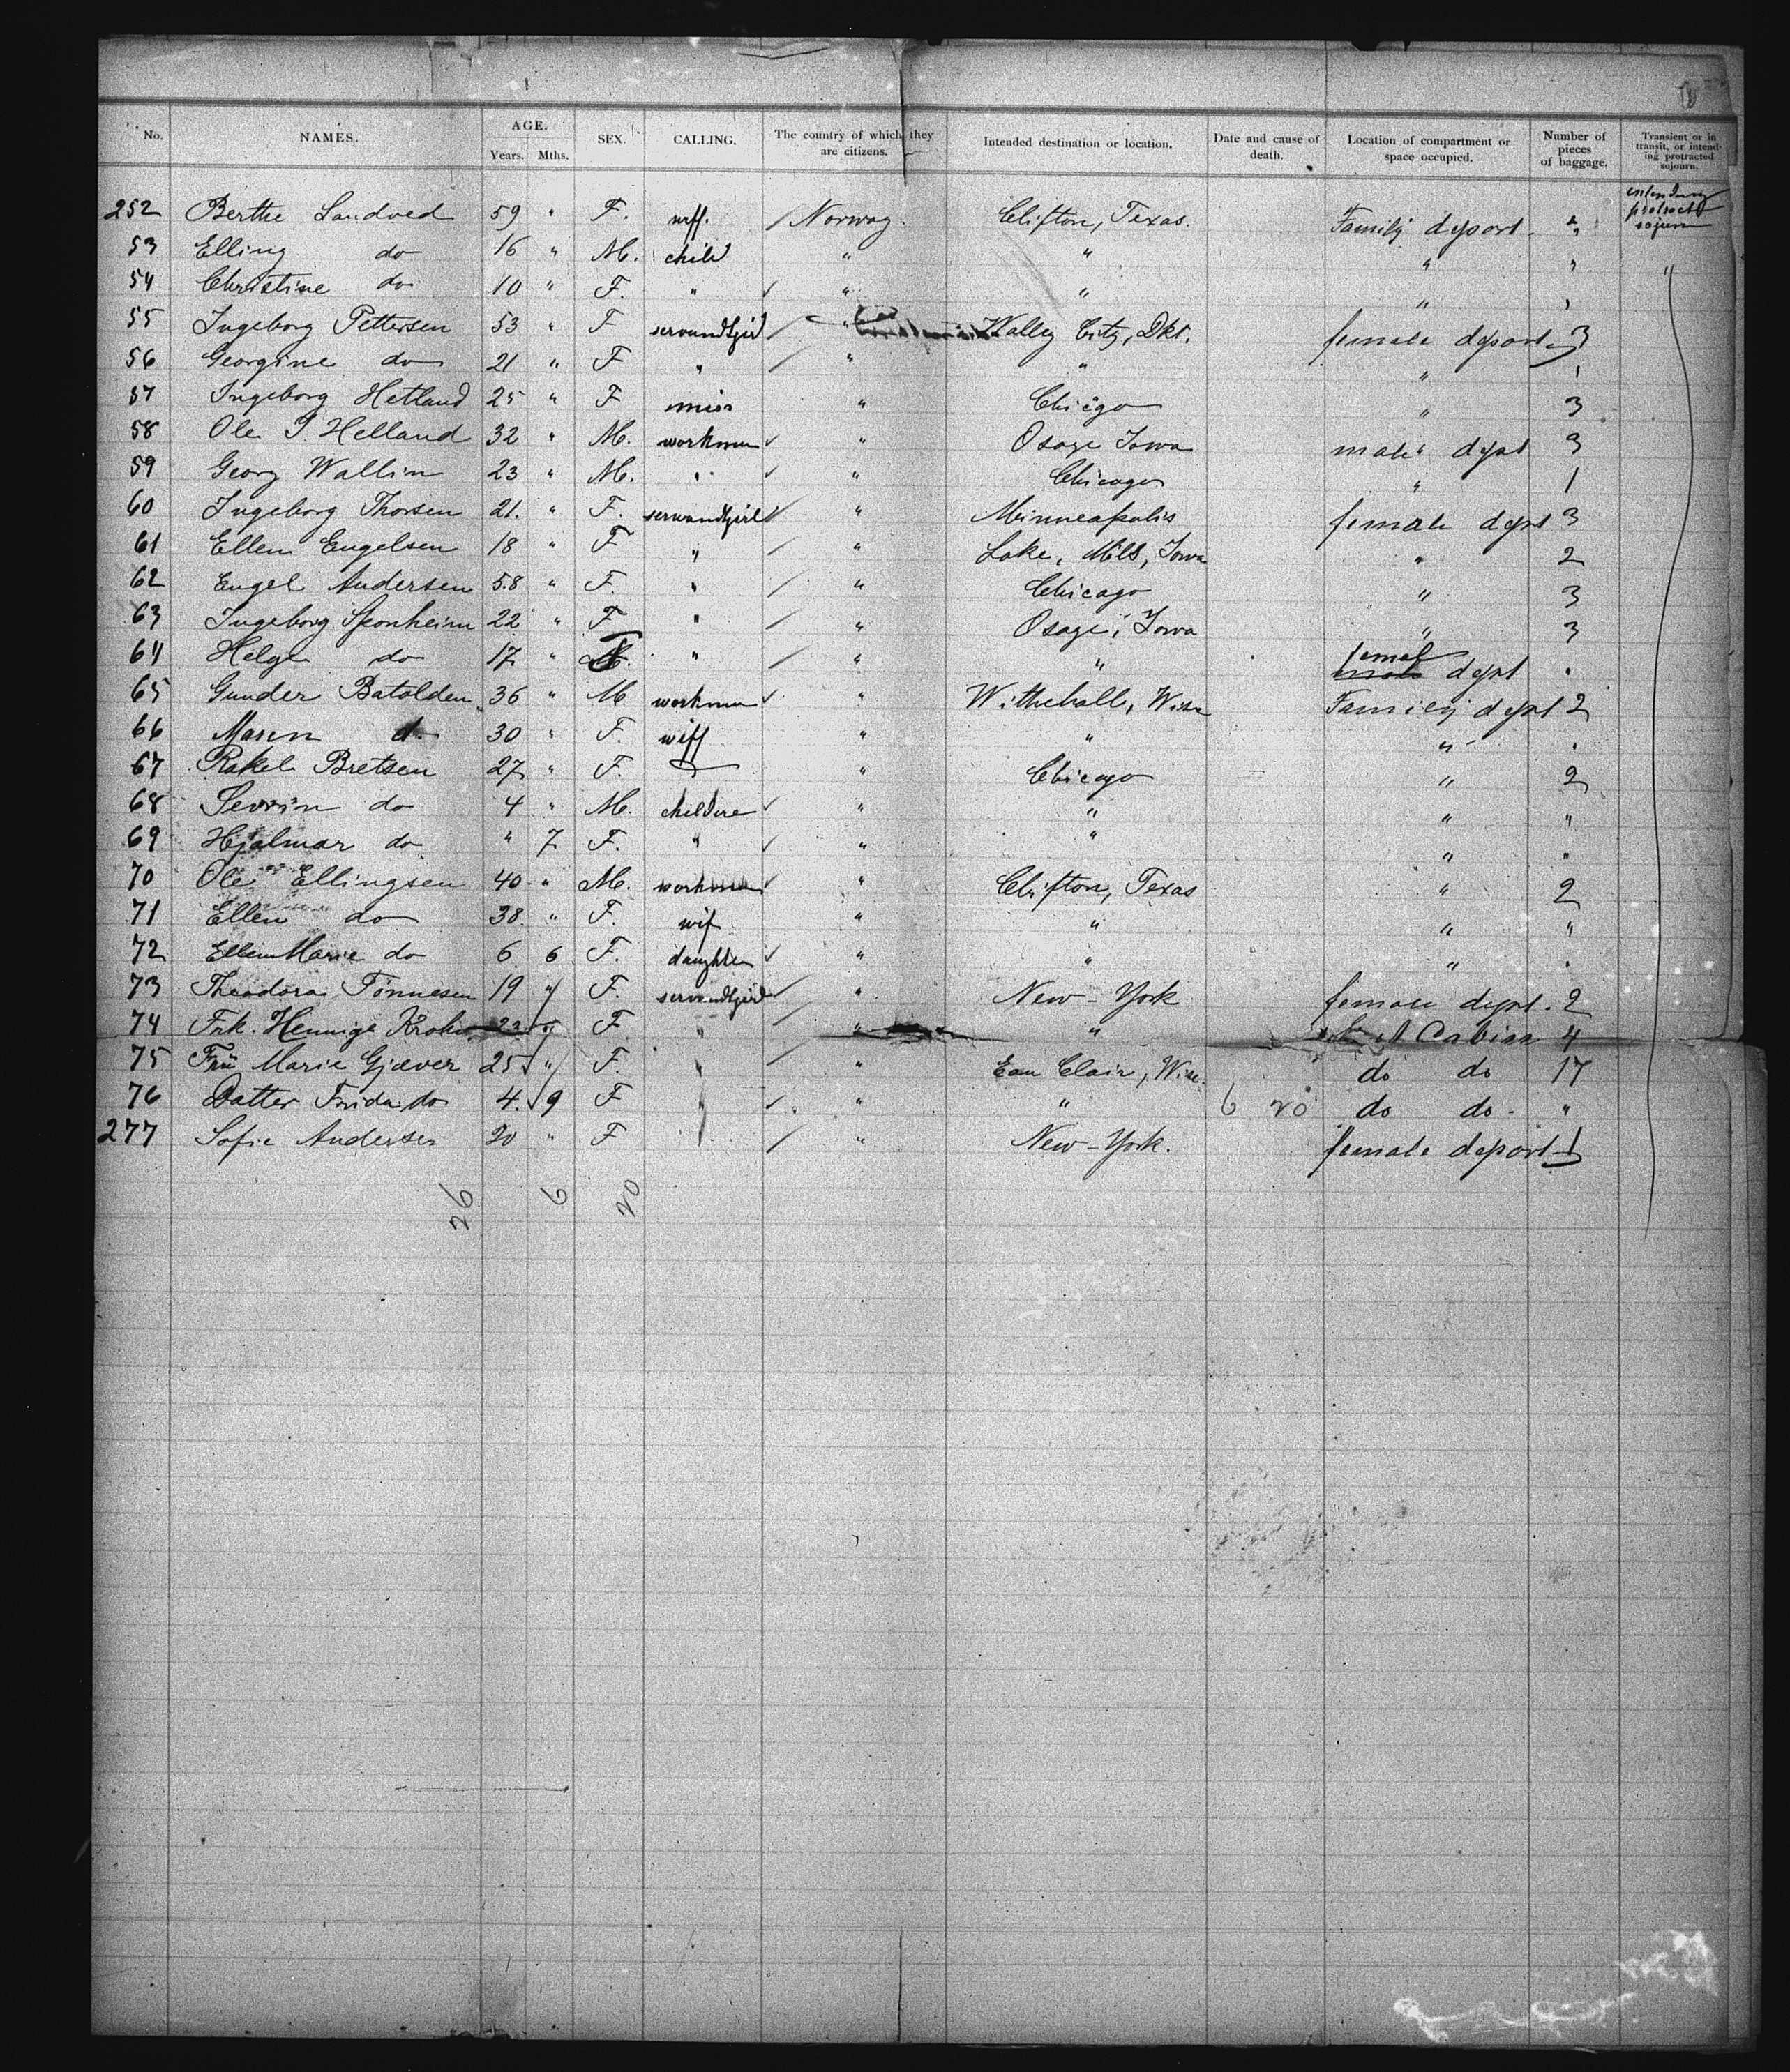 No. NAMES. AGE. Years. Mths. SEX. CALLING. The country of which they are citizens. Intended destination or location. Date and cause of death. Location of compartment or space occupied. Number of pieces of baggage. Transient or in transit, or intending protracted sojourn.
252 Berthe Sandved 59 " F. wiff. / Norway. Clifton, Texas. Family deport. " intending protract sojurn
53 Elling do 16 " M. child " " " " "
54 Christine do 10 " F. " ✓ " " " "
55 Ingeborg Pettersen 53 " F servandtgirl / " Walley City, Dkt. female deport. 3
56 Georgine do 21 " F " / " " " 1
57 Ingeborg Hetland 25 " F miss " Chicago " 3
58 Ole P. Helland 32 " M. workman ✓ " Osage Iowa male dept 3
59 Georg Wallin 23 " M. " ✓ " Chicago " 1
60 Ingeborg Thorsen 21. " F. servandtgirl ✓ " Minneapolis female dept 3
61 Ellen Engelsen 18 " F " / " Lake, Mils, Iowa " 2
62 Engel Andersen 58 " F. " / " Chicago " 3
63 Ingeborg Sponheim 22 " F " / " Osage, Iowa " 3
64 Helge do 17 " F " / " " femal dept "
65 Gunder Batolden 36 " M workman ✓ " Withehall, Wisc Family dept 2
66 Maren do 30 " F. wiff " " " "
67 Rakel Bretsen 27 " F. " Chicago " 2
68 Severin do 4 " M. childere ✓ " " " "
69 Hjalmar do " 7 F. " ✓ " " " "
70 Ole Ellingsen 40 " M. workman ✓ " Clifton, Texas " 2
71 Ellen do 38. " F. wif " " " "
72 Ellen Marie do 6 6 F. daughter ✓ " " " "
73 Theodora Tönnesen 19 " F. servandtgirl / " New-York female dept. 2
74 Frk. Hennige Krohn 23 " F " / " " Cabin 4
75 Frü Marie Gjæver 25 " F. " / " Eau Clair, Wisc. do do 17
76 Datter Frida do 4. 9 F " ✓ " " 6 20 do do - "
277 Sofie Andersen 20 " F / " New-York. female deport. 1
26 6 20